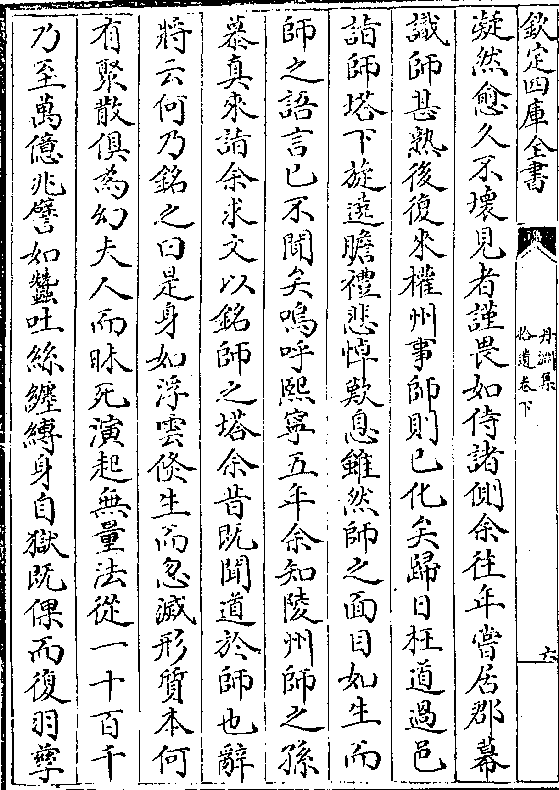 欽定四庫全書
丹淵集
拾遺卷下
六
凝然愈久不壞見者謹畏如侍諸側余往年嘗居郡幕
識師甚熟後復來權州事師則已化矣歸日枉道過邑
詣師塔下旋遶瞻禮悲悼歎息雖然師之面目如生而
師之語言已不聞矣嗚呼熙寧五年余知陵州師之孫
慕真來請余求文以銘師之塔余昔既聞道於師也辭
將云何乃銘之曰是身如浮雲倐生而忽滅形質本何
有聚散俱為幻夫人而昧死演起無量法從一十百千
乃至萬億兆譬如蠶吐絲纒縛身自獄既倮而復羽孽